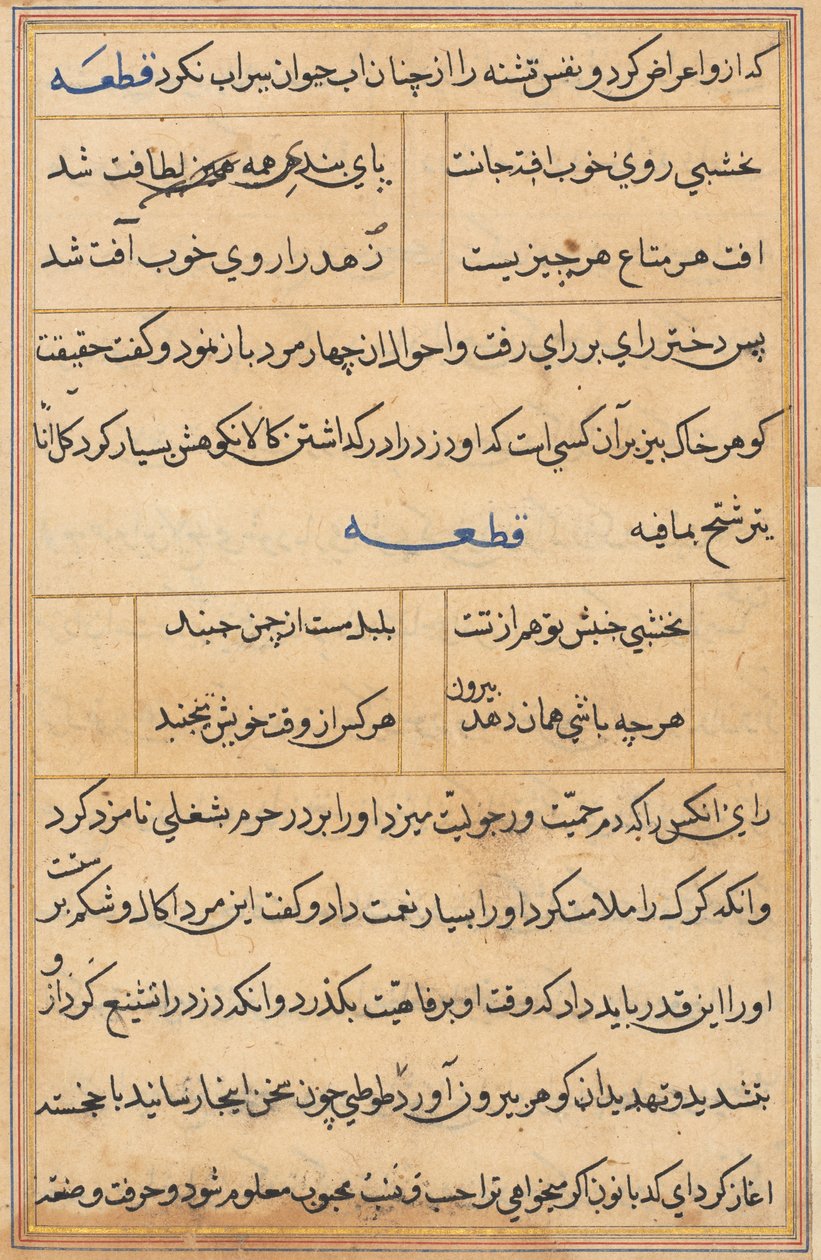 که ازو اعراض کرد و نفس تشنه را از چنان اب حیوان سیراب نکرد قطعه
نخشبي روي خوب افت جانست پاي بند هر همه لطافت شد
افت هر متاع هر چیزیست زهد را روي خوب آفت شد
پس دختر راي بر راي رفت و احوال ان چهار مرد باز نمود و کفت حقیقت
کوهر خاک بیز بر آن کسي است که او دزد را در کداشتن کالا نکوهش بسیار کرد کل انآ
یترشّح بما فیه قطعه
نخشبي جنبش تو هم از تست بلبل مست از چمن جنبد
هر چه باشي همان دهد بیرون هر کس از وقت خویش بجنبد
راي انکس را که دم حمیّت و رجولیّت میزد او را بر در حرم بشغلي نامزد کرد
و انکه کرک را ملامت کرد او را بسیار نعمت داد و کفت این مرد اکال و شکم پرستست
او را این قدر باید داد که وقت او برفاهیّت بکذرد و انکه دزد را تشینع کرد از و
بتشدید و تهدید ان کوهر بیرون آورد طوطي چون سخن اینجا رسانید با خجسته
اغاز کرد اي کدبانو ن اکر میخواهي ترا حسب و نسب محبوب معلوم شود و حرفت و صنعت